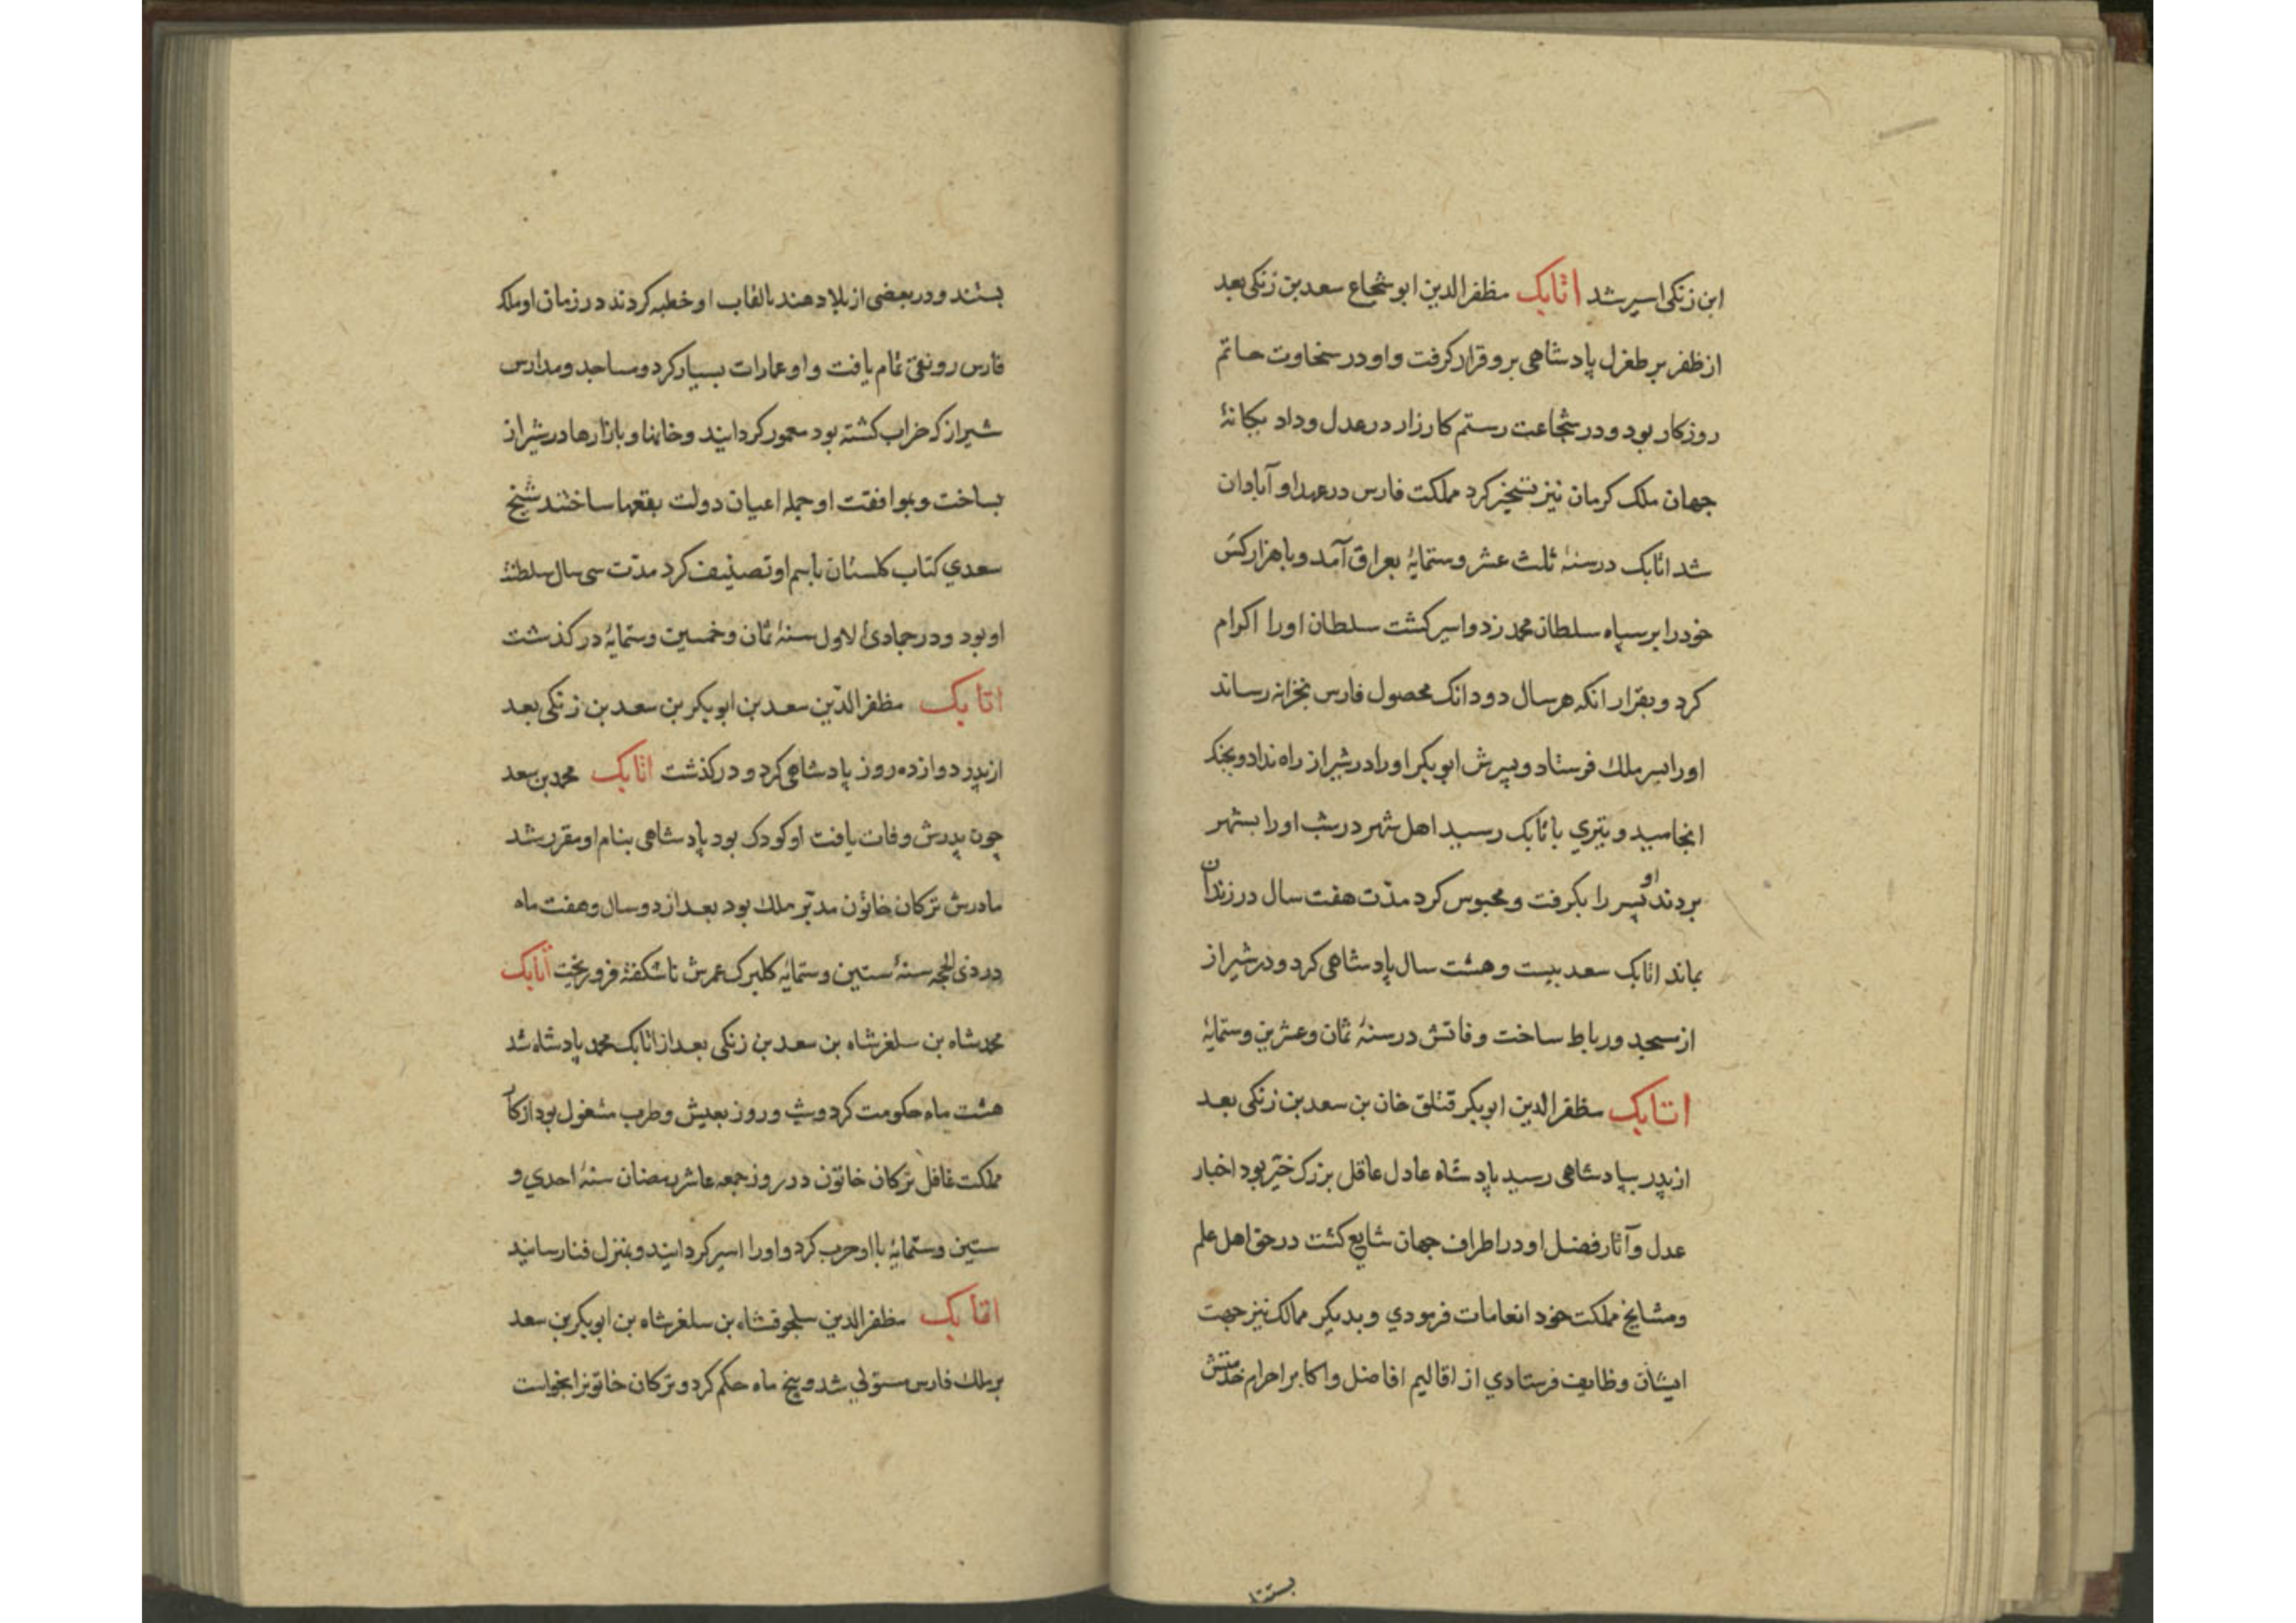 ابن زنکی اسیر شد اتابک مظفر الدین ابو شجاع سعد بن زنکی بعد
از ظفر بر طغرل پادشاهی بر و قرار کرفت و او در سخاوت حاتم
روزکار بود و در شجاعت رستم کارزار در عدل و داد یکانهٔ
جهان ملک کرمان نیز تسخیر کرد مملکت فارس در عهد او آبادان
شد اتابک در سنهٔ ثلث عشر و ستمایهٔ بعراق آمد و با هزار کس
خود را بر سپاه سلطان محمد زد و اسیر کشت سلطان او را اکرام
کرد و بقرار انکه هر سال دو دانک محصول فارس بخزانه رساند
او را بسر ملک فرستاد و پسرش ابو بکر او را در شیراز راه نداد و بجنک
انجامید و تیری باتابک رسید اهل شهر در شب او را بشهر
بردند او پسر را بکرفت و محبوس کرد مدّت هفت سال در زندان
بماند اتابک سعد بیست و هشت سال پادشاهی کرد و در شیراز
از مسجد و رباط ساخت وفاتش در سنهٔ ثمان و عشرین و ستمایهٔ
اتابک مظفر الدین ابو بکر قتلق خان بن سعد بن زنکی بعد
از پدر بپادشاهی رسید پادشاه عادل عاقل بزرک خیّر بود اخبار
عدل و آثار فضل او در اطراف جهان شایع کشت در حق اهل علم
و مشایخ مملکت خود انعامات فرمودی و بدیکر ممالک نیز جهت
ایشان وظایف فرستادی از اقالیم افاضل و اکابر احرام خدمتش
بستند
بستند و در بعضی از بلاد هند بالقاب او خطبه کردند در زمان او ملک
فارس رونقی تمام یافت و او عمارات بسیار کرد و مساجد و مدارس
شیراز که خراب کشته بود معمور کردانید و خانها و بازارها در شیراز
بساخت و بموافقت او جمله اعیان دولت بقعها ساختند شیخ
سعدی کتاب کلستان باسم او تصنیف کرد مدّت سی سال سلطنة
او بود و در جمادی الاول سنهٔ ثمان و خمسین و ستمایهٔ در کذشت
اتابک مظفر الدّین سعد بن ابو بکر بن سعد بن زنکی بعد
از پدر دوازده روز پادشاهی کرد و در کذشت اتابک محمد بن سعد
چون پدرش وفات یافت او کودک بود پادشاهی بنام او مقرر شد
مادرش ترکان خاتون مدبّر ملک بود بعد از دو سال و هفت ماه
در ذی الحجه سنهٔ ستین و ستمایهٔ کلبرک عمرش ناشکفته فرو ریخت اتابک
محمد شاه بن سلغر شاه بن سعد بن زنکی بعد از اتابک محمد پادشاه شد
هشت ماه حکومت کرد و شب و روز بعیش و طرب مشغول بود از کار
مملکت غافل ترکان خاتون در روز جمعه عاشر رمضان سنهٔ احدی و
ستین و ستمایهٔ با او حرب کرد و او را اسیر کردانید و بمنزل فنا رسانید
اتابک مظفر الدین سلجوقشاه بن سلغر شاه بن ابو بکر بن سعد
بر ملک فارس مستولی شد و پنج ماه حکم کرد و ترکان خاتونرا بخواست